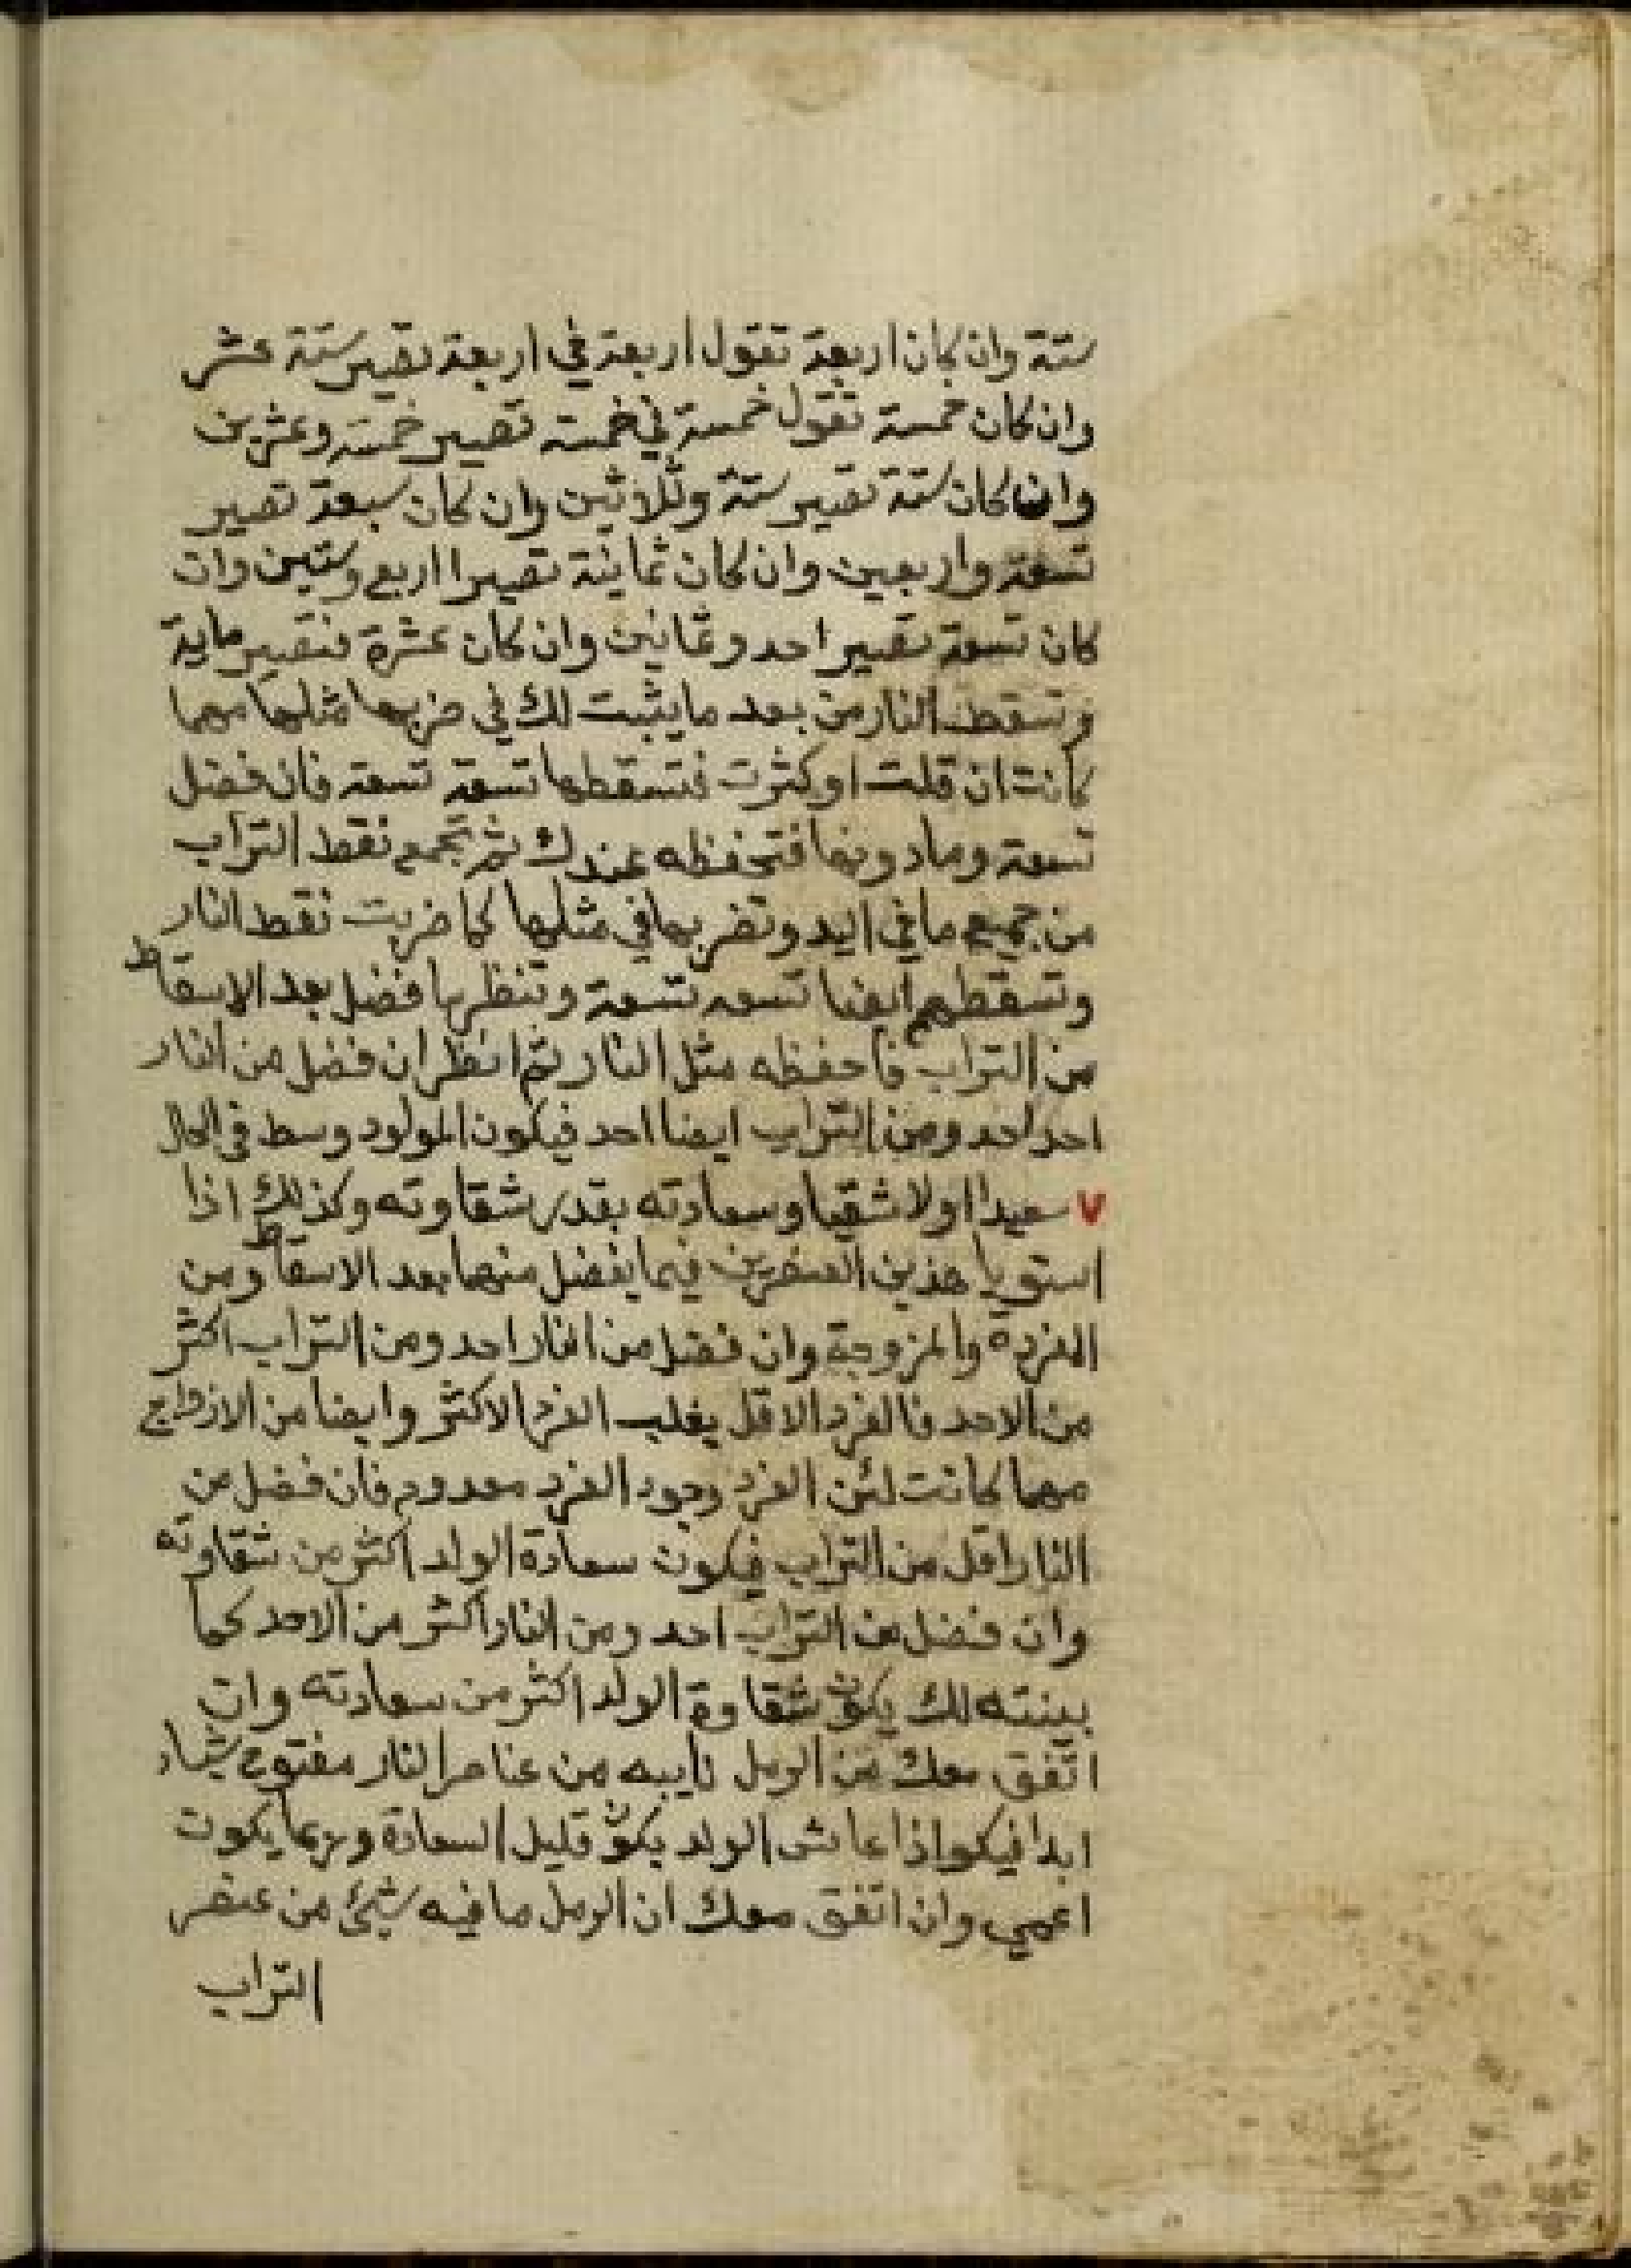 ستة وان كان اربعة تقول اربعة في اربعة تصير ستة عشر
وان كان خمسة تقول خمسة في خمسة تصير خمسة وعشرين
وان كان ستة تصير ستة وثلاثين وان كان سبعة تصير
تسعة واربعين وان كان ثمانية تصير اربع وستين وان
كان تسعة تصير احد وثمانين وان كان عشرة فتصير ماية
وتسقط النار من بعد ما يثبت لك في ضربها مثلها مهما
كانت ان قلت او كثرت فتسقطها تسعة تسعة فان فضل
تسعة وما دونها فتحفظه عندك ثم تجمع نقط التراب
من جميع ما في اليد وتضربها في مثلها كما ضربت نقط النار
وتسقطهم ايضا تسعه تسعة وتنظر ما فضل بعد الاسقاط
من التراب فاحفظه مثل النار ثم انظر ان فضل من النار
احد احد ومن التراب ايضا احد فيكون المولود وسط في الحال
٧ سعيدا اولا شقيا وسعادته بقدر شقاوته وكذلك اذا
استويا هذين العنصرين فيما يفضل منهما بعد الاسقاط ومن
المفردة والمزوجة وان فضل من النار احد ومن التراب اكثر
من الاحد فالفرد الاقل يغلب الفرد الاكثر وايضا من الازواج
مهما كانت لئن الفرد وجود الفرد معدوم فان فضل من
النار اقل من التراب فيكون سعادة الولد اكثر من شقاوته
وان فضل من التراب احد ومن النار اكثر من الاحد كما
بينته لك يكون شقاوة الولد اكثر من سعادته وان
اتفق معك من الرمل نايبه من عناصر النار مفتوح
ابدا فيكو اذا عاش الولد يكون قليل السعادة وربما يكون
اعمي وان اتفق معك ان الرمل ما فيه شئ من عنصر
التراب